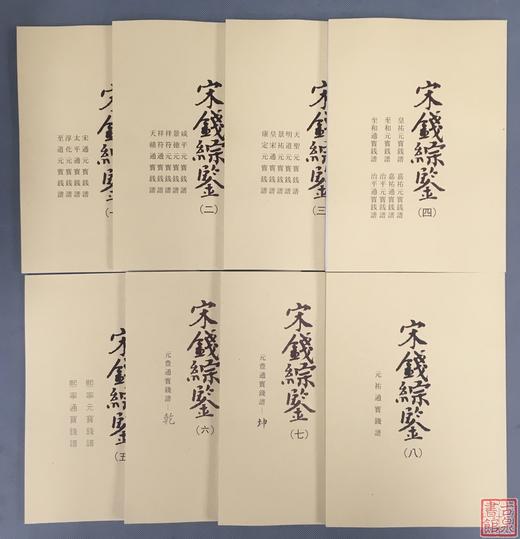 宋錢綜鑒(一)
宋通元寶錢譜
太平通寶錢譜
淳化元寶錢譜
至道元寶錢譜
宋錢綜鑒(二)
咸平元寶錢譜
景德元寶錢譜
祥符元寶錢譜
祥符通寶錢譜
天禧通寶錢譜
宋錢綜鑒(三)
天聖元寶錢譜
明道元寶錢譜
景祐元寶錢譜
皇宋通寶錢譜
康定元寶錢譜
宋錢綜鑒(四)
皇祐元寶錢譜
至和元寶錢譜
至和通寶錢譜
嘉祐元寶錢譜
嘉祐通寶錢譜
治平元寶錢譜
治平通寶錢譜
宋錢綜鑒(五
熙寧元寶錢譜
熙寧通寶錢譜
宋錢綜鑒(六)
元豊通寶錢譜 乾
宋錢綜鑒(七)
元豊通寶錢譜 坤
宋錢綜鑒(八)
元祐通寶錢譜
古泉書館